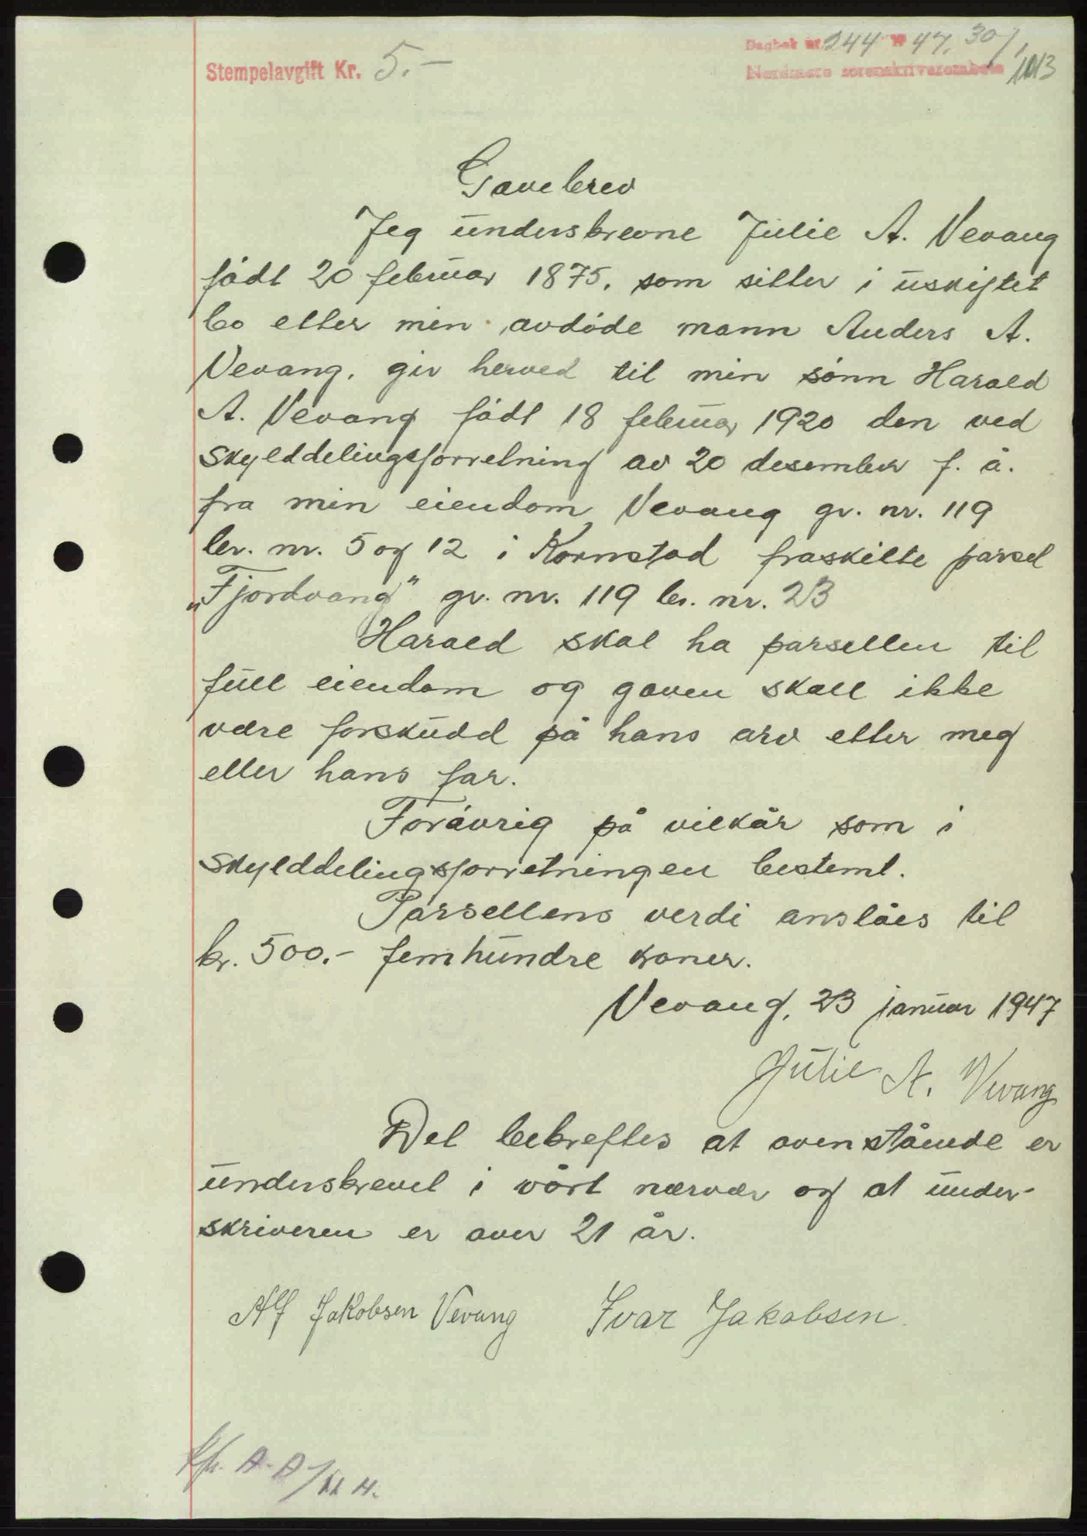 Stempelavgift Kr. 5.-
Dagbok nr. 244 19 47, 30/1
Nordmøre sorenskriverembete
1113
Gavebrev
Jeg underskrevne Julie A. Vevang
født 20 februar 1875, som sitter i uskiftet
bo etter min avdøde mann Anders A.
Vevang, gir herved til min sønn Harald
A. Vevang født 18 februar 1920 den ved
skylddelingsforretning av 20 desember f. å.
fra min eiendom Vevang gr. nr. 119
br. nr. 5 og 12 i Kornstad fraskilte parsel
„Fjordvang" gr. nr. 119 br. nr. 23
Harald skal ha parsellen til
full eiendom og gaven skall ikke
være forskudd på hans arv etter meg
eller hans far.
Forøvrig på vilkår som i
skylddelingsforretningen bestemt.
Parsellens verdi anslåes til
kr. 500.- femhundre kroner.
Vevang, 23 januar 1947
Julie A. Vevang
Det bekreftes at ovenstående er
underskrevet i vårt nærvær og at under-
skriveren er over 21 år.
Alf Jakobsen Vevang Ivar Jakobsen.